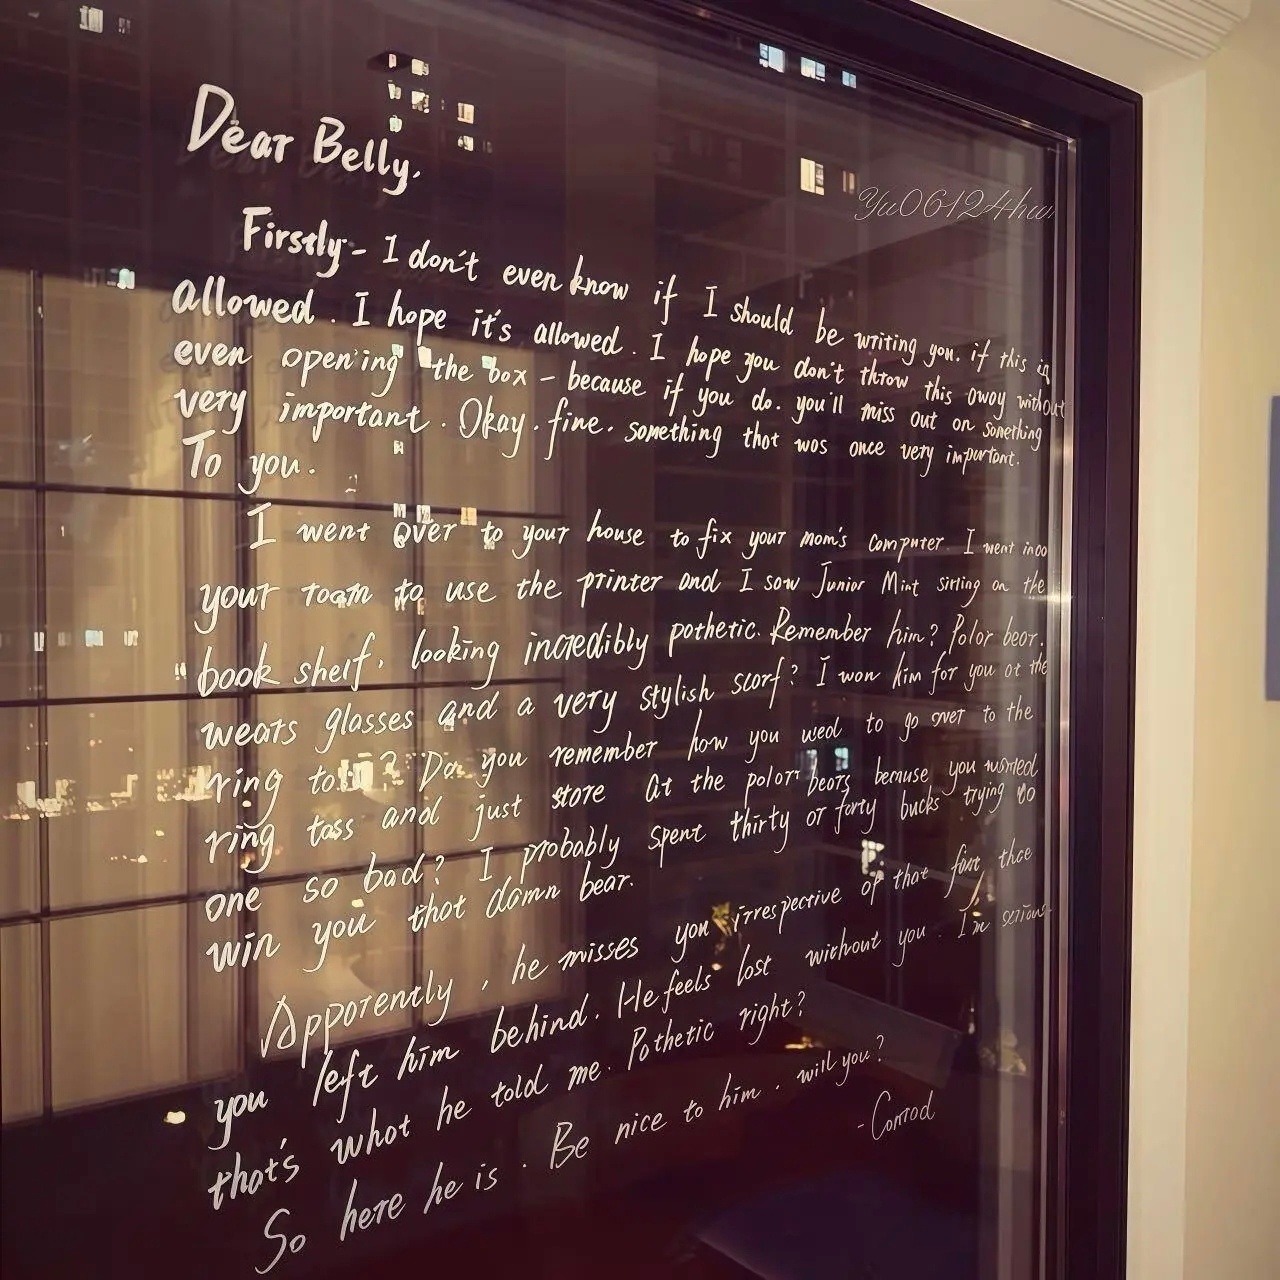 Dear Belly,
Yu06124hw
Firstly - I don't even know if I should be writing you. if this is
allowed. I hope it's allowed. I hope you don't throw this away without
even opening the box - because if you do. you'll miss out on something
very important. Okay. fine. something that was once very important.
To you.
I went over to your house to fix your mom's computer. I went into
your room to use the printer and I saw Junior Mint sitting on the
book shelf, looking incredibly pathetic. Remember him? Polar bear.
wears glasses and a very stylish scarf? I won him for you at the
ring toss? Do you remember how you used to go over to the
ring toss and just store at the polar bears because you wanted
one so bad? I probably spent thirty or forty bucks trying to
win you that damn bear.
Apparently, he misses you irrespective of that fact that
you left him behind. He feels lost without you. I'm serious
that's what he told me. Pathetic right?
So here he is. Be nice to him. will you?
- Conrad